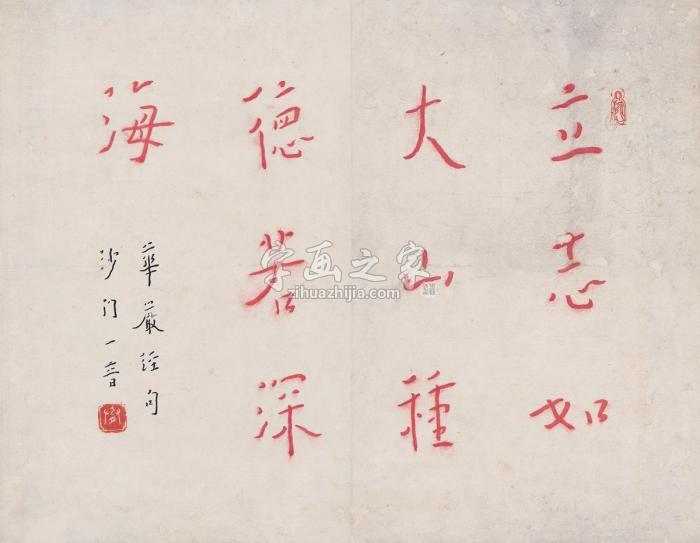 立志如
大山種
德若深
海
華嚴經句
沙门一音
字画之家
zihuazhijia.com